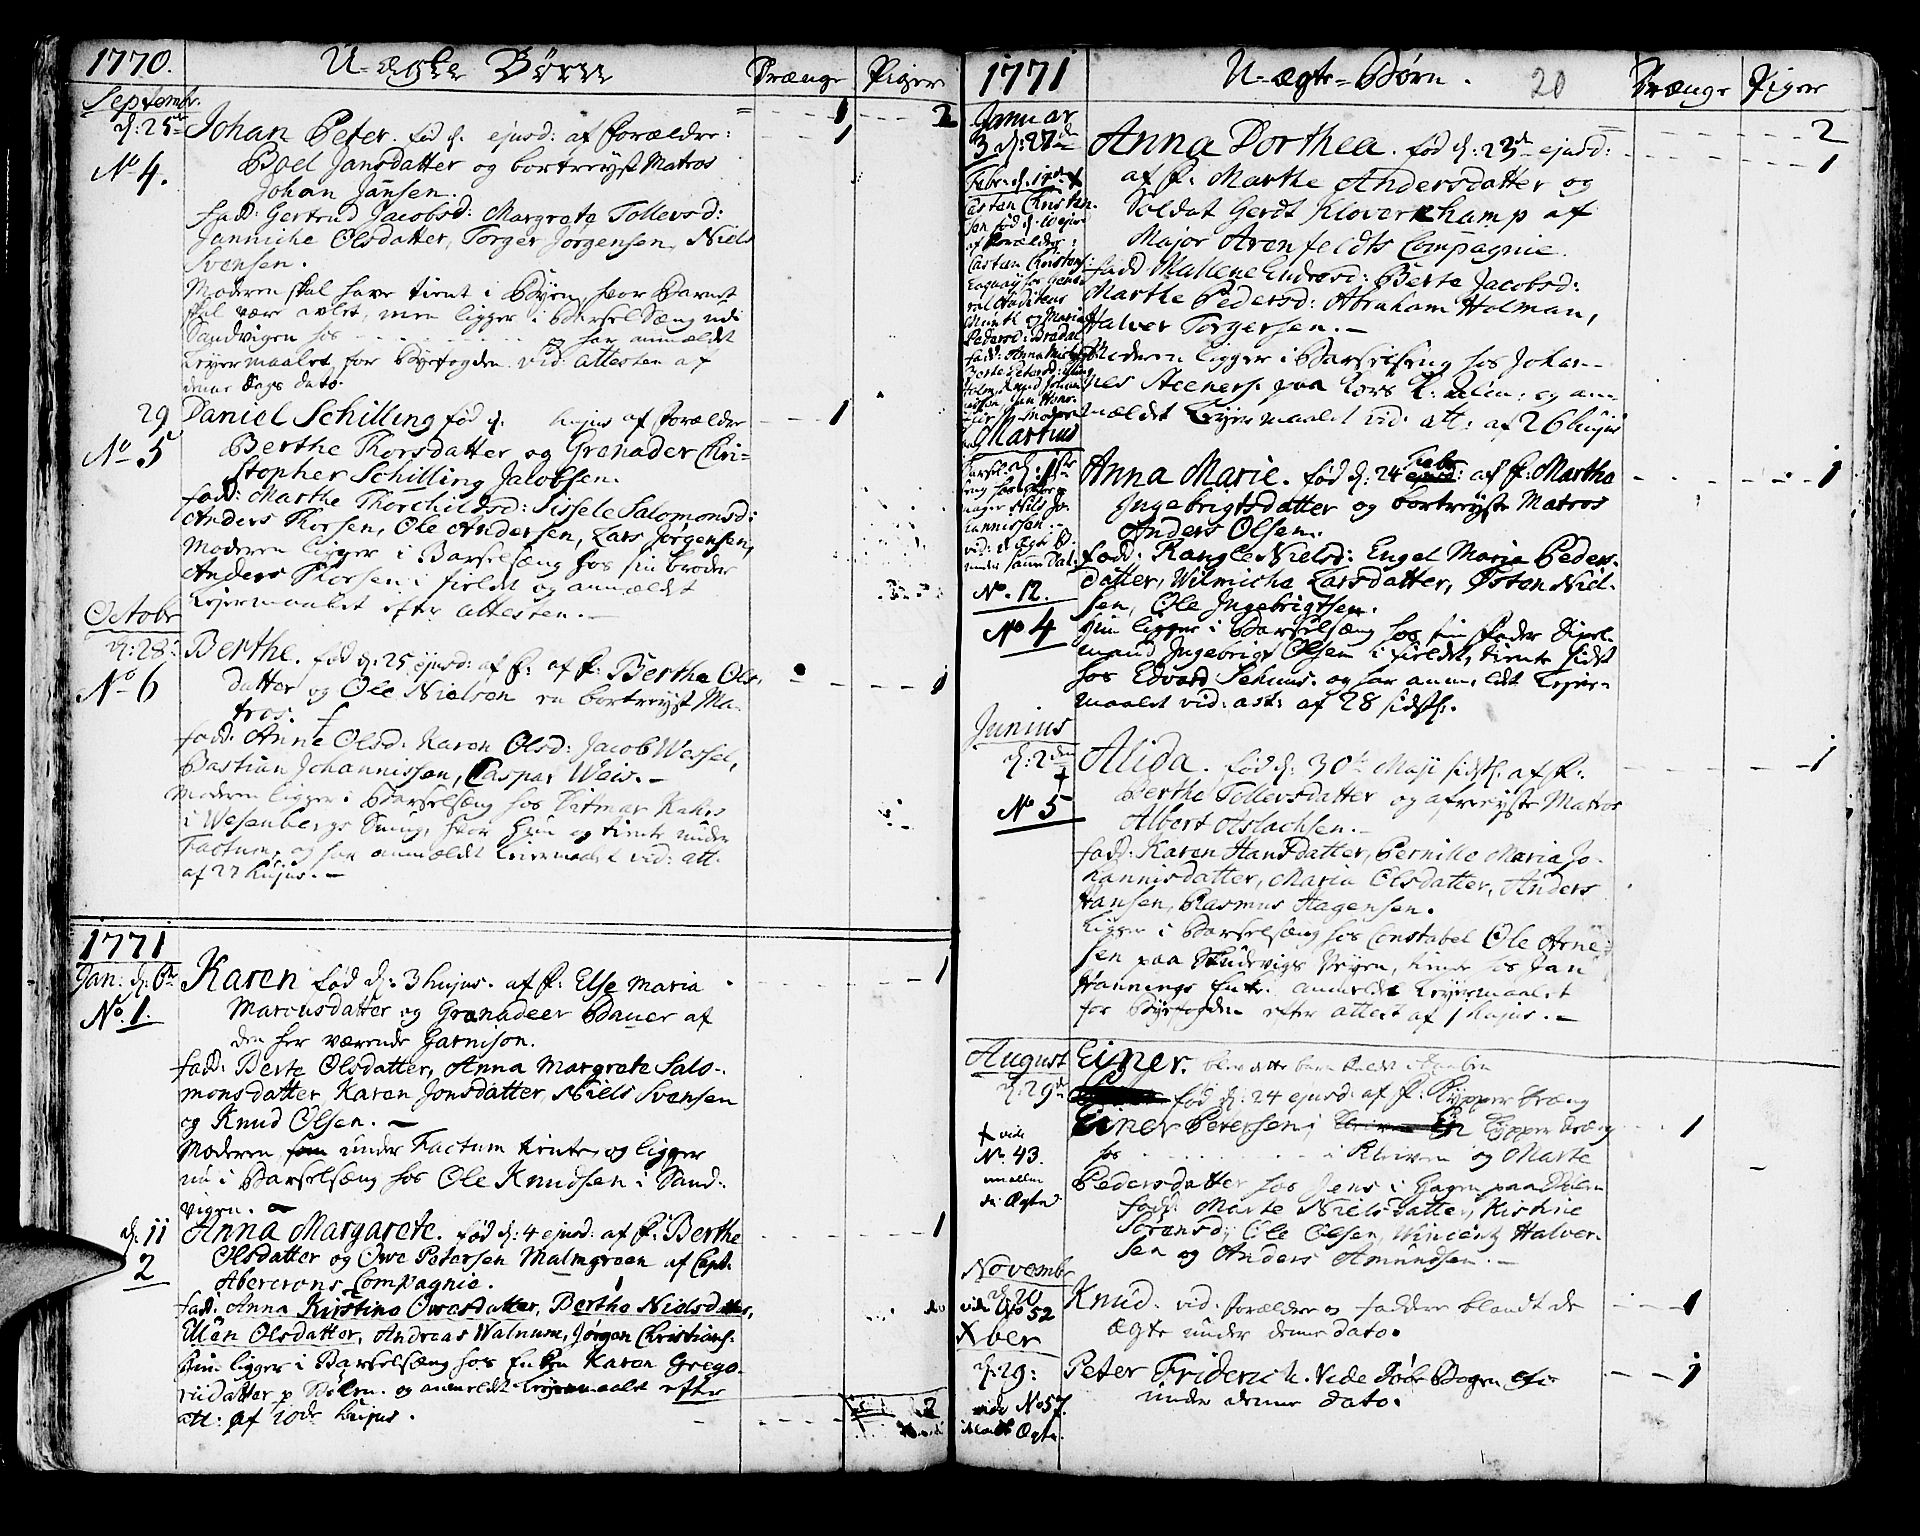 1770. U-ægte Børn Drænge Piger
Septembr.
1 2
d: 25de Johan Peter. fød d: ejusd: af Forældre: 1
No 4. Boel Jansdatter og bortreyst Matros
Johan Jansen.
Fadd: Gertrud Jacobsd: Margrete Tollevsd:
Janniche Olsdatter, Torger Jørgensen, Niels
Svensen.
Moderen skal have tient i Byen, hvor Barnet
skal være avlet, men ligger i Barsel Sæng udi
Sandvigen hos . . . . . . . . . og har anmeldet
Leyermaalet for Byefogden vid: attesten af
denne Dags dato.
29 Daniel Schilling fød d: hujus af Forældre 1
No 5 Berthe Thorsdatter og Grenader Chri-
stopher Schilling Jacobsen.
Fadd: Marthe Thorchildsd: Sissele Salomonsd:
Anders Thorsen, Ole Andersen, Lars Jørgensen,
Moderen ligger i Barselsæng hos sin broder
Anders Thorsen i fieldet og anmældet
Leyermaalet efter attesten.
Octobr
d: 28: Berthe. fød d: 25 ejusd: af F: af F: Berthe Ols-
No 6 datter og Ole Nielsen en bortreyst Ma- 1
tros.
Fadd: Anne Olsd: Karen Olsd: Jacob Wessel,
Bastian Johannissen, Caspar Weis.
Moderen ligger i Barselsæng hos Ditmar
i Wesenbergs Smug, hvor hun og tiente under
Factum, og har anmældet Leiermaalet vid: att.
af 27 hujus.
1771
Jan: d: 6te Karen fød d: 3 hujus. af F: Else Maria 1
No. 1. Marcusdatter og Granadeer Bauer af
den her værende Garnison.
Fadd: Berte Olsdatter, Anna Margrete Salo-
monsdatter, Karen Jonsdatter, Niels Svensen
og Knud Olsen.
Moderen som under Factum tiente, og ligger
nu i Barselsæng hos Ole Knudsen i Sand-
vigen.
d: 11 Anna Margarete. fød d: 4 ejusd: af F: Berthe 1
2 Olsdatter og Owe Petersen Malmgreen af Capt:
Abercrons Compagnie.
Fadd: Anna Kirstina Owesdatter, Berthe Nielsdatter,
Olsdatter, Andreas Walnum, Jørgen Christians:
Hun ligger i Barselsæng hos Enken Karen Grego-
riidatter p og anmeldet Leyermaalet efter
att: af 10de hujus. 2
1771 U-ægte-Børn. 20 Drænge Piger
Januar 2
3 d: 27de Anna Dorthea. fød d: 23de ejusd: 1
af F: Marthe Andersdatter og
Soldat Gerdt Kloverkhamp af
Major Arenfeldts Compagnie.
Fadd Mallene Endresd: Berte Jacobsd:
Marthe Pedersd: Abraham Holman,
Halver Torgersen.
Moderen ligger i Barselseng hos Johan-
nes Steeners. paa og an-
mældet Leyermaalet vid: att: af 26 hujus
Febr. d. 17de
Castan Christen-
sen fød d: 10 ejus
af Forældre:
Martius
d: 1ste Anna Marie. fød d: 24 Febr: af F: Martha 1
Ingebrigtsdatter og bortreyste Matros
Anders Olsen.
Fadd: Rangle Nielsd: Engel Maria Peders-
datter, Wilmiche Larsdatter, Østen Niel-
No. 12. sen, Ole Ingebrigtsen.
No 4 Hun ligger i Barselsæng hos sin Fader
mand Ingebrigt Olsen i fieldet, tiente sidst
hos Edvard og har anmeldt Leyer-
maalet vid: att: af 28 sidstl.
Junius
d: 2den Alida. fød d: 30te Maji sidstl. af F: 1
No 5 Berthe Tollevsdatter og afreyste Matros
Albert Aslachsen.
Fadd: Karen Hansdatter, Pernille Maria Jo-
hannisdatter, Maria Olsdatter, Anders
Hansen, Rasmus Hagensen.
Ligger i Barselsæng hos Constabel Ole Arne-
sen paa Veyen, tiente hos Jan
Hannings Enke. anmeldet Leyermaalet
for Byefogden efter attest af 1 hujus.
August Einer.
d: 29de fød d: 24 ejusd: af F: Kypper Dræng
Einer Petersen, Kypper Dræng 1
x vide hos . . . . . . . i og Marte
No. 43. Pedersdatter hos Jens i Hagen paa
imellem Fadd: Marte Nielsdatter, Kistine
de Ægte Sørensd:, Ole Olsen, Wincentz Halver-
sen og Anders Amundsen.
Novembr
d: 20 Knud. vid: Forældre og Faddere blandt de 1
vide No 52 Ægte under denne dato.
Xber
d: 29: Peter Friderich. Vide Døbe Bogen 1
vide No 57. under denne dato.
iblandt Ægte.